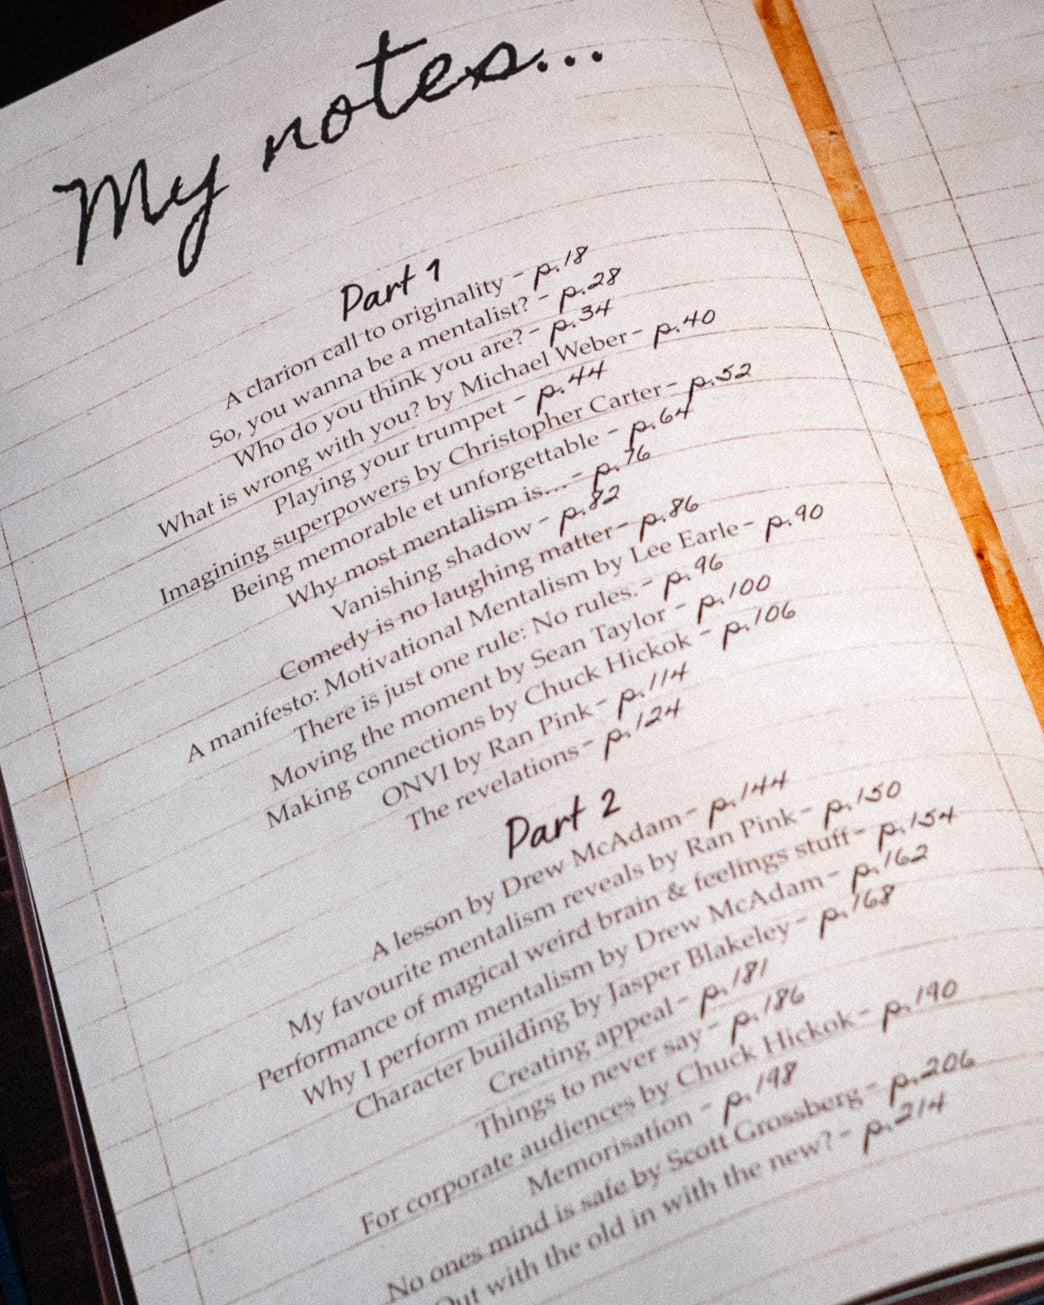 My notes...
Part 1
A clarion call to originality - p.18
So, you wanna be a mentalist? - p.28
Who do you think you are? - p.34
What is wrong with you? by Michael Weber - p.40
Playing your trumpet - p.44
Imagining superpowers by Christopher Carter - p.52
Being memorable et unforgettable - p.64
Why most mentalism is... - p.76
Vanishing shadow - p.82
Comedy is no laughing matter - p.86
A manifesto: Motivational Mentalism by Lee Earle - p.90
There is just one rule: No rules. - p.96
Moving the moment by Sean Taylor - p.100
Making connections by Chuck Hickok - p.106
ONVI by Ran Pink - p.114
The revelations - p.124
Part 2
A lesson by Drew McAdam - p.144
My favourite mentalism reveals by Ran Pink - p.150
Performance of magical weird brain & feelings stuff - p.154
Why I perform mentalism by Drew McAdam - p.162
Character building by Jasper Blakeley - p.168
Creating appeal - p.181
Things to never say - p.186
For corporate audiences by Chuck Hickok - p.190
Memorisation - p.198
No ones mind is safe by Scott Grossberg - p.206
Out with the old in with the new? - p.214